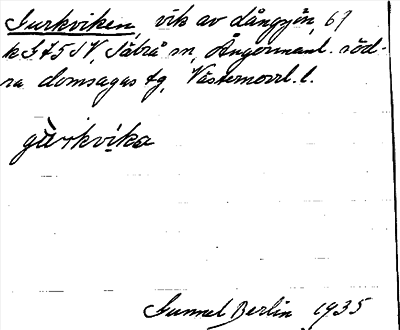 Gurkviken, vik av Långsjön, 69
k I 75 SV, Säbrå sn, Ångermanl. söd-
ra domsagas tg, Västernorrl. l.
gùrkvika
Gunnel Berlin 1935